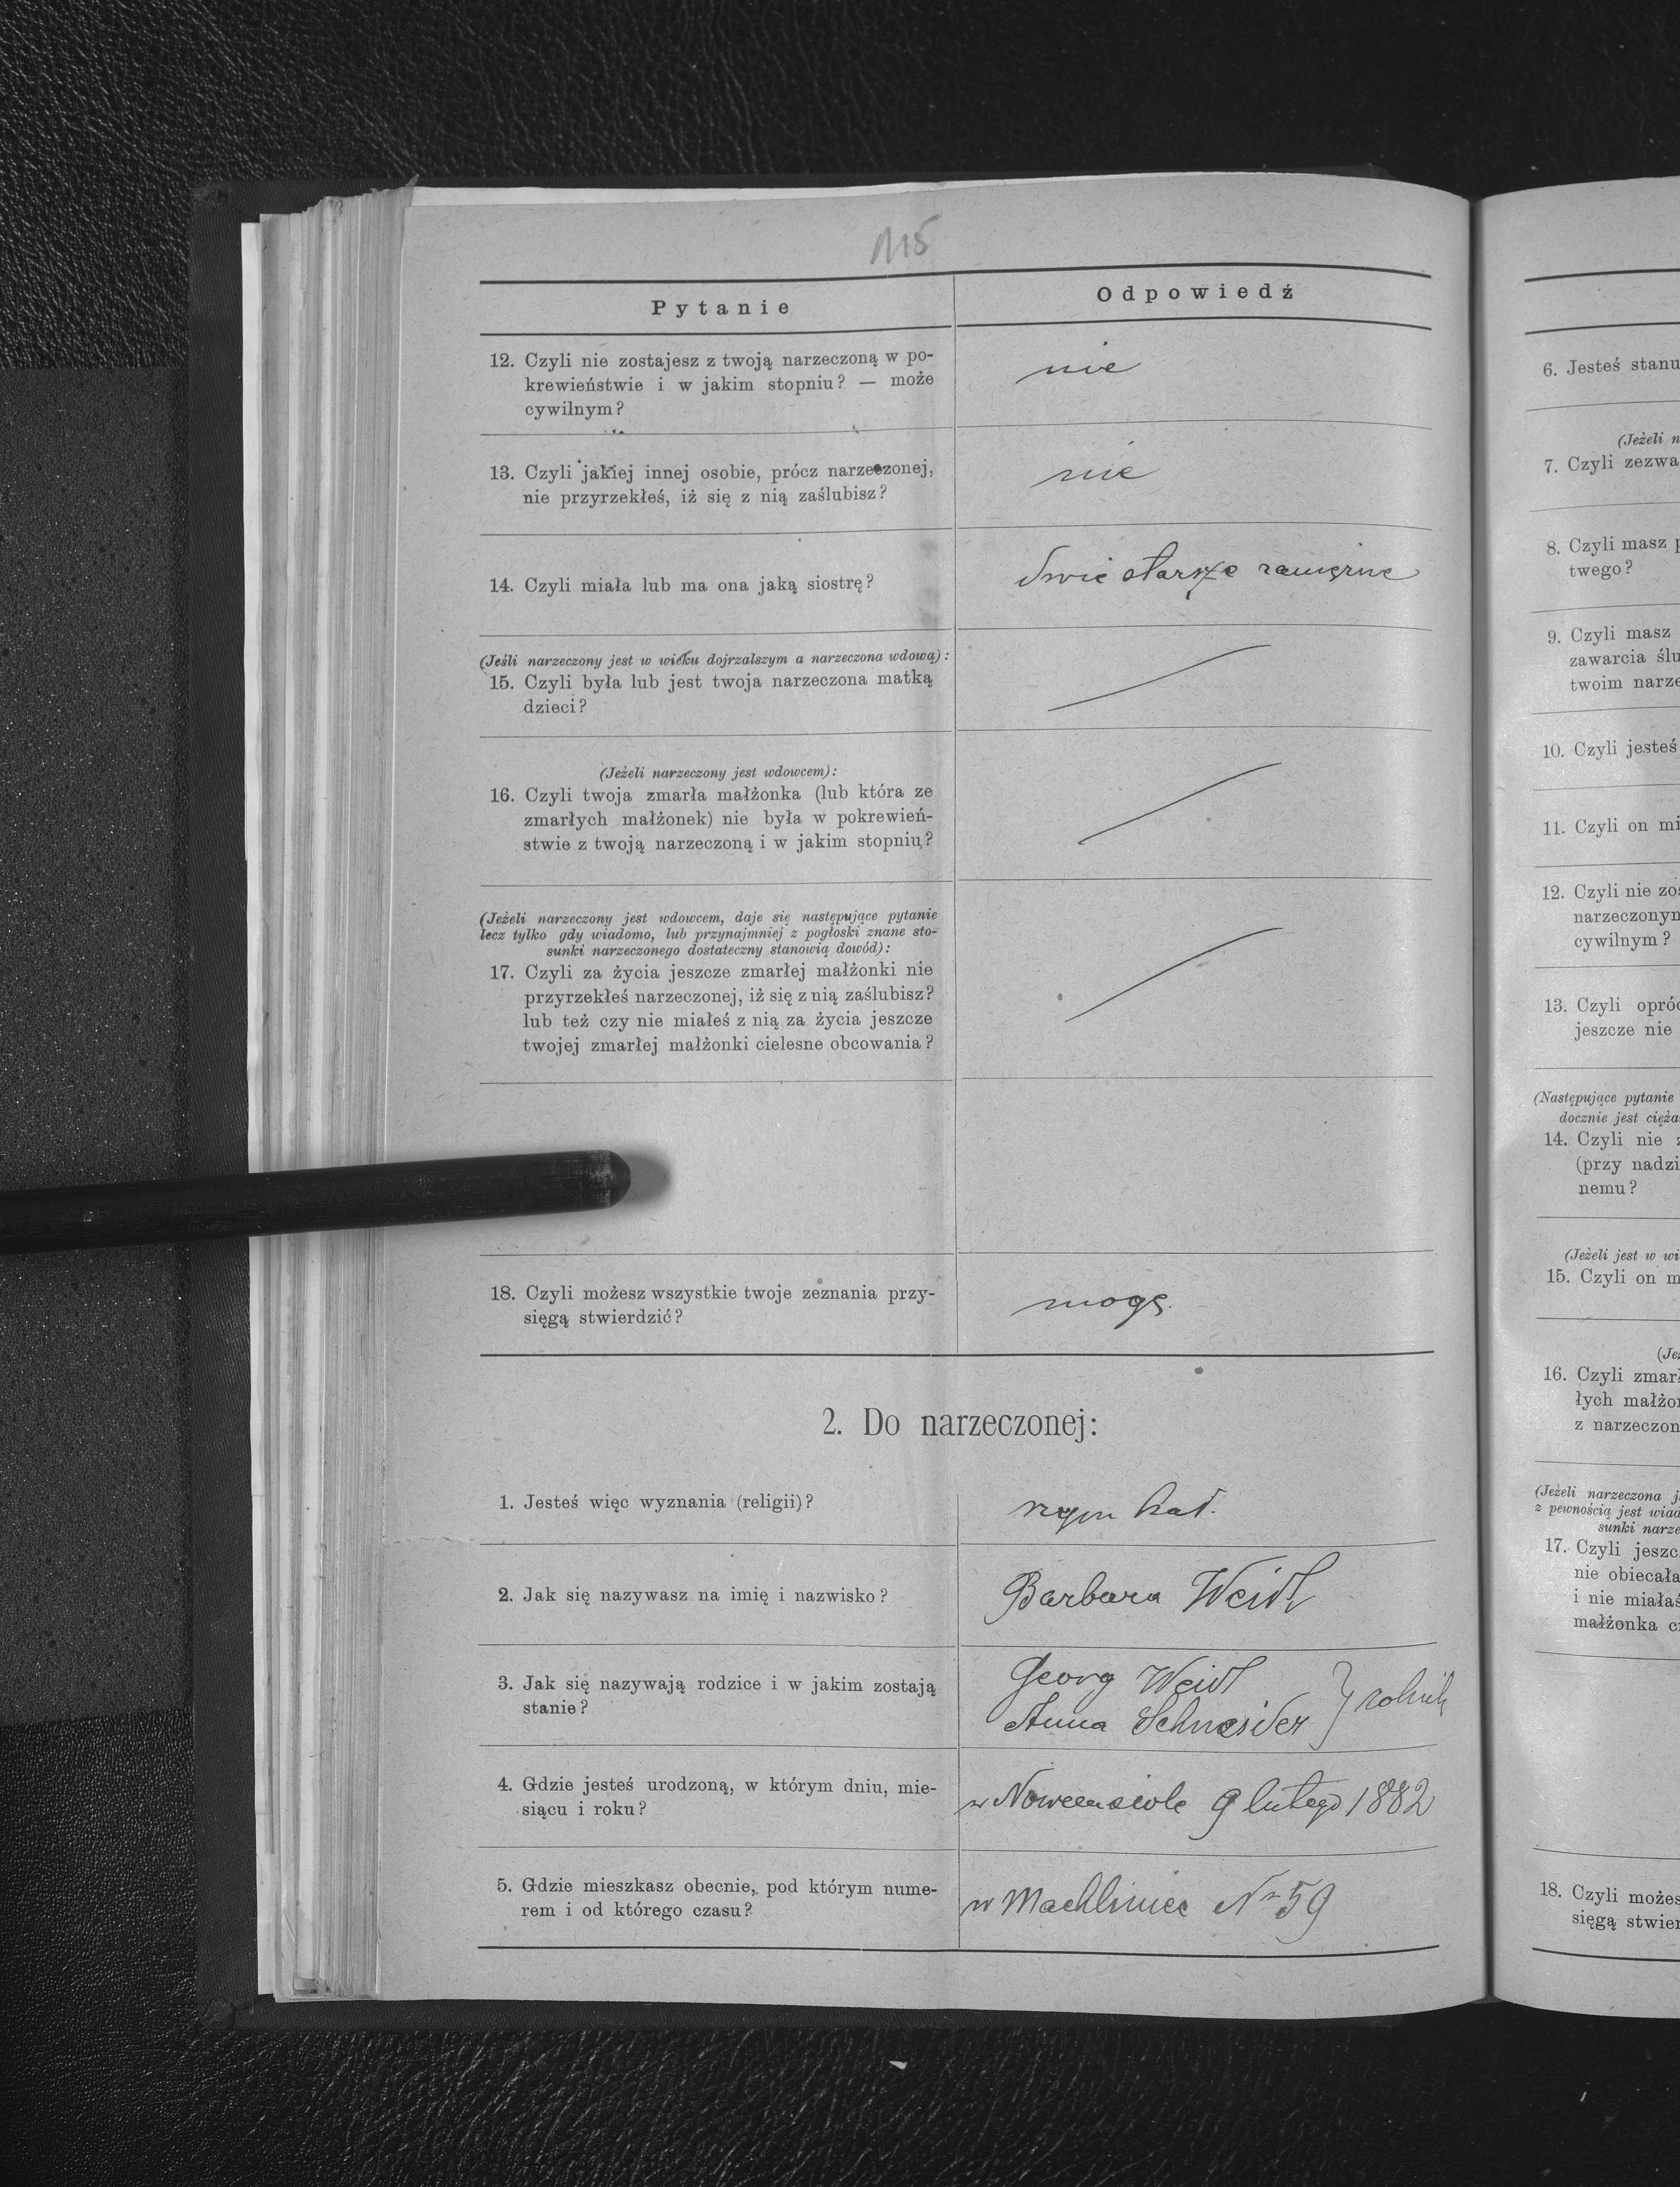 115
Pytanie
Odpowiedź
12. Czyli nie zostajesz z twoją narzeczoną w po-
krewieństwie i w jakim stopniu? — może
cywilnym?
nie
13. Czyli jakiej innej osobie, prócz narzeczonej,
nie przyrzekłeś, iż się z nią zaślubisz?
nie
14. Czyli miała lub ma ona jaką siostrę?
dwie starsze zamężne
(Jeśli narzeczony jest w wieku dojrzalszym a narzeczona wdową):
15. Czyli była lub jest twoja narzeczona matką
dzieci?
(Jeżeli narzeczony jest wdowcem):
16. Czyli twoja zmarła małżonka (lub która ze
zmarłych małżonek) nie była w pokrewień-
stwie z twoją narzeczoną i w jakim stopniu?
(Jeżeli narzeczony jest wdowcem, daje się następujące pytanie
lecz tylko gdy wiadomo, lub przynajmniej z pogłoski znane sto-
sunki narzeczonego dostateczny stanowią dowód):
17. Czyli za życia jeszcze zmarłej małżonki nie
przyrzekłeś narzeczonej, iż się z nią zaślubisz?
lub też czy nie miałeś z nią za życia jeszcze
twojej zmarłej małżonki cielesne obcowania?
18. Czyli możesz wszystkie twoje zeznania przy-
sięgą stwierdzić?
mogę.
2. Do narzeczonej:
1. Jesteś więc wyznania (religii)?
rzym kat.
2. Jak się nazywasz na imię i nazwisko?
Barbara Weidl
3. Jak się nazywają rodzice i w jakim zostają
stanie?
Georg Weidl
Anna Schneider } rolnik
4. Gdzie jesteś urodzoną, w którym dniu, mie-
siącu i roku?
w 9 lutego 1882
5. Gdzie mieszkasz obecnie, pod którym nume-
rem i od którego czasu?
w Machliniec Nr 59
6. Jesteś stanu
(Jeżeli n
7. Czyli zezwa
8. Czyli masz p
twego?
9. Czyli masz
zawarcia ślu
twoim narze
10. Czyli jesteś
11. Czyli on mi
12. Czyli nie zos
narzeczonym
cywilnym?
13. Czyli opróc
jeszcze nie
(Następujące pytanie
docznie jest cięża
14. Czyli nie z
(przy nadzi
nemu?
(Jeżeli jest w wi
15. Czyli on m
(Jeż
16. Czyli zmarł
łych małżon
z narzeczon
(Jeżeli narzeczona j
z pewnością jest wiad
sunki narze
17. Czyli jeszc
nie obiecała
i nie miałaś
małżonka ci
18. Czyli możes
sięgą stwier